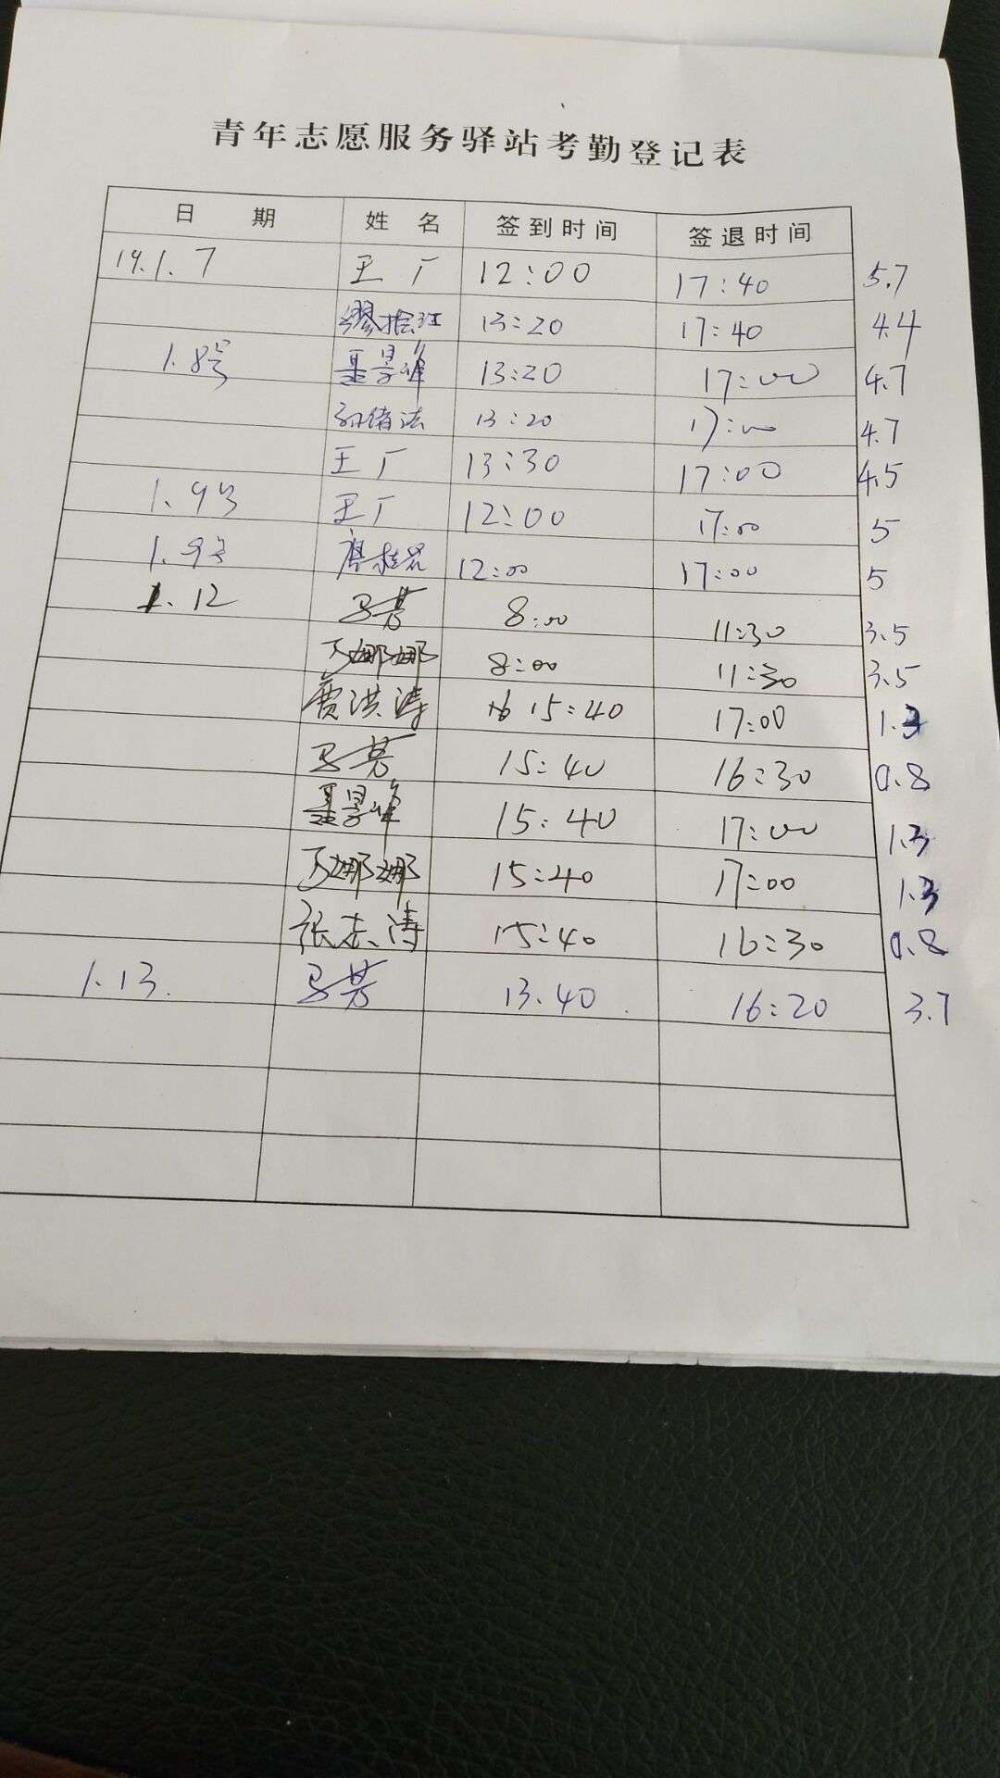 青年志愿服务驿站考勤登记表
日 期 姓 名 签到时间 签退时间
19.1.7 王厂 12:00 17:40 5.7
缪拾江 13:20 17:40 4.4
1.8号 聂景峰 13:20 17:00 4.7
孙绪法 13:20 17:00 4.7
王厂 13:30 17:00 4.5
1.9号 王厂 12:00 17:00 5
1.9号 12:00 17:00 5
1.12 马芳 8:00 11:30 3.5
马娜娜 8:00 11:30 3.5
贾洪涛 15:40 17:00 1.3
马芳 15:40 16:30 0.8
聂景峰 15:40 17:00 1.3
马娜娜 15:40 17:00 1.3
张志涛 15:40 16:30 0.8
1.13. 马芳 13.40 16:20 3.7